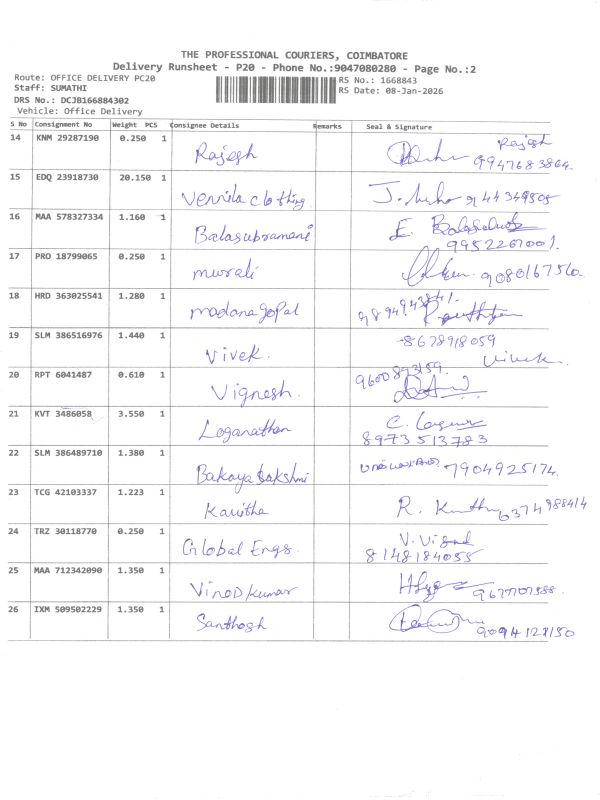 THE PROFESSIONAL COURIERS, COIMBATORE
Delivery Runsheet - P20 - Phone No.:9047080280 - Page No.:2
Route: OFFICE DELIVERY PC20
Staff: SUMATHI
DRS No.: DCJB166884302
Vehicle: Office Delivery
RS No.: 1668843
RS Date: 08-Jan-2026
S No Consignment No Weight PCS Consignee Details Remarks Seal & Signature
14 KNM 29287190 0.250 1 Rajesh Rajesh
9947683864.
15 EDQ 23918730 20.150 1 Vennila clothing
16 MAA 578327334 1.160 1 Balasubramani E.
9952267001.
17 PRO 18799065 0.250 1 murali
18 HRD 363025541 1.280 1 madana gopal
19 SLM 386516976 1.440 1 Vivek. 8678918059
Vivek
20 RPT 6041487 0.610 1 Vignesh.
21 KVT 3486058 3.550 1 Loganathan C.
8973513783
22 SLM 386489710 1.380 1 7904925174.
23 TCG 42103337 1.223 1 Kavitha R. 6374988414
24 TRZ 30118770 0.250 1 Global Engs. V.
8148184055
25 MAA 712342090 1.350 1 Vinod kumar
26 IXM 509502229 1.350 1 Santhosh
9094128150